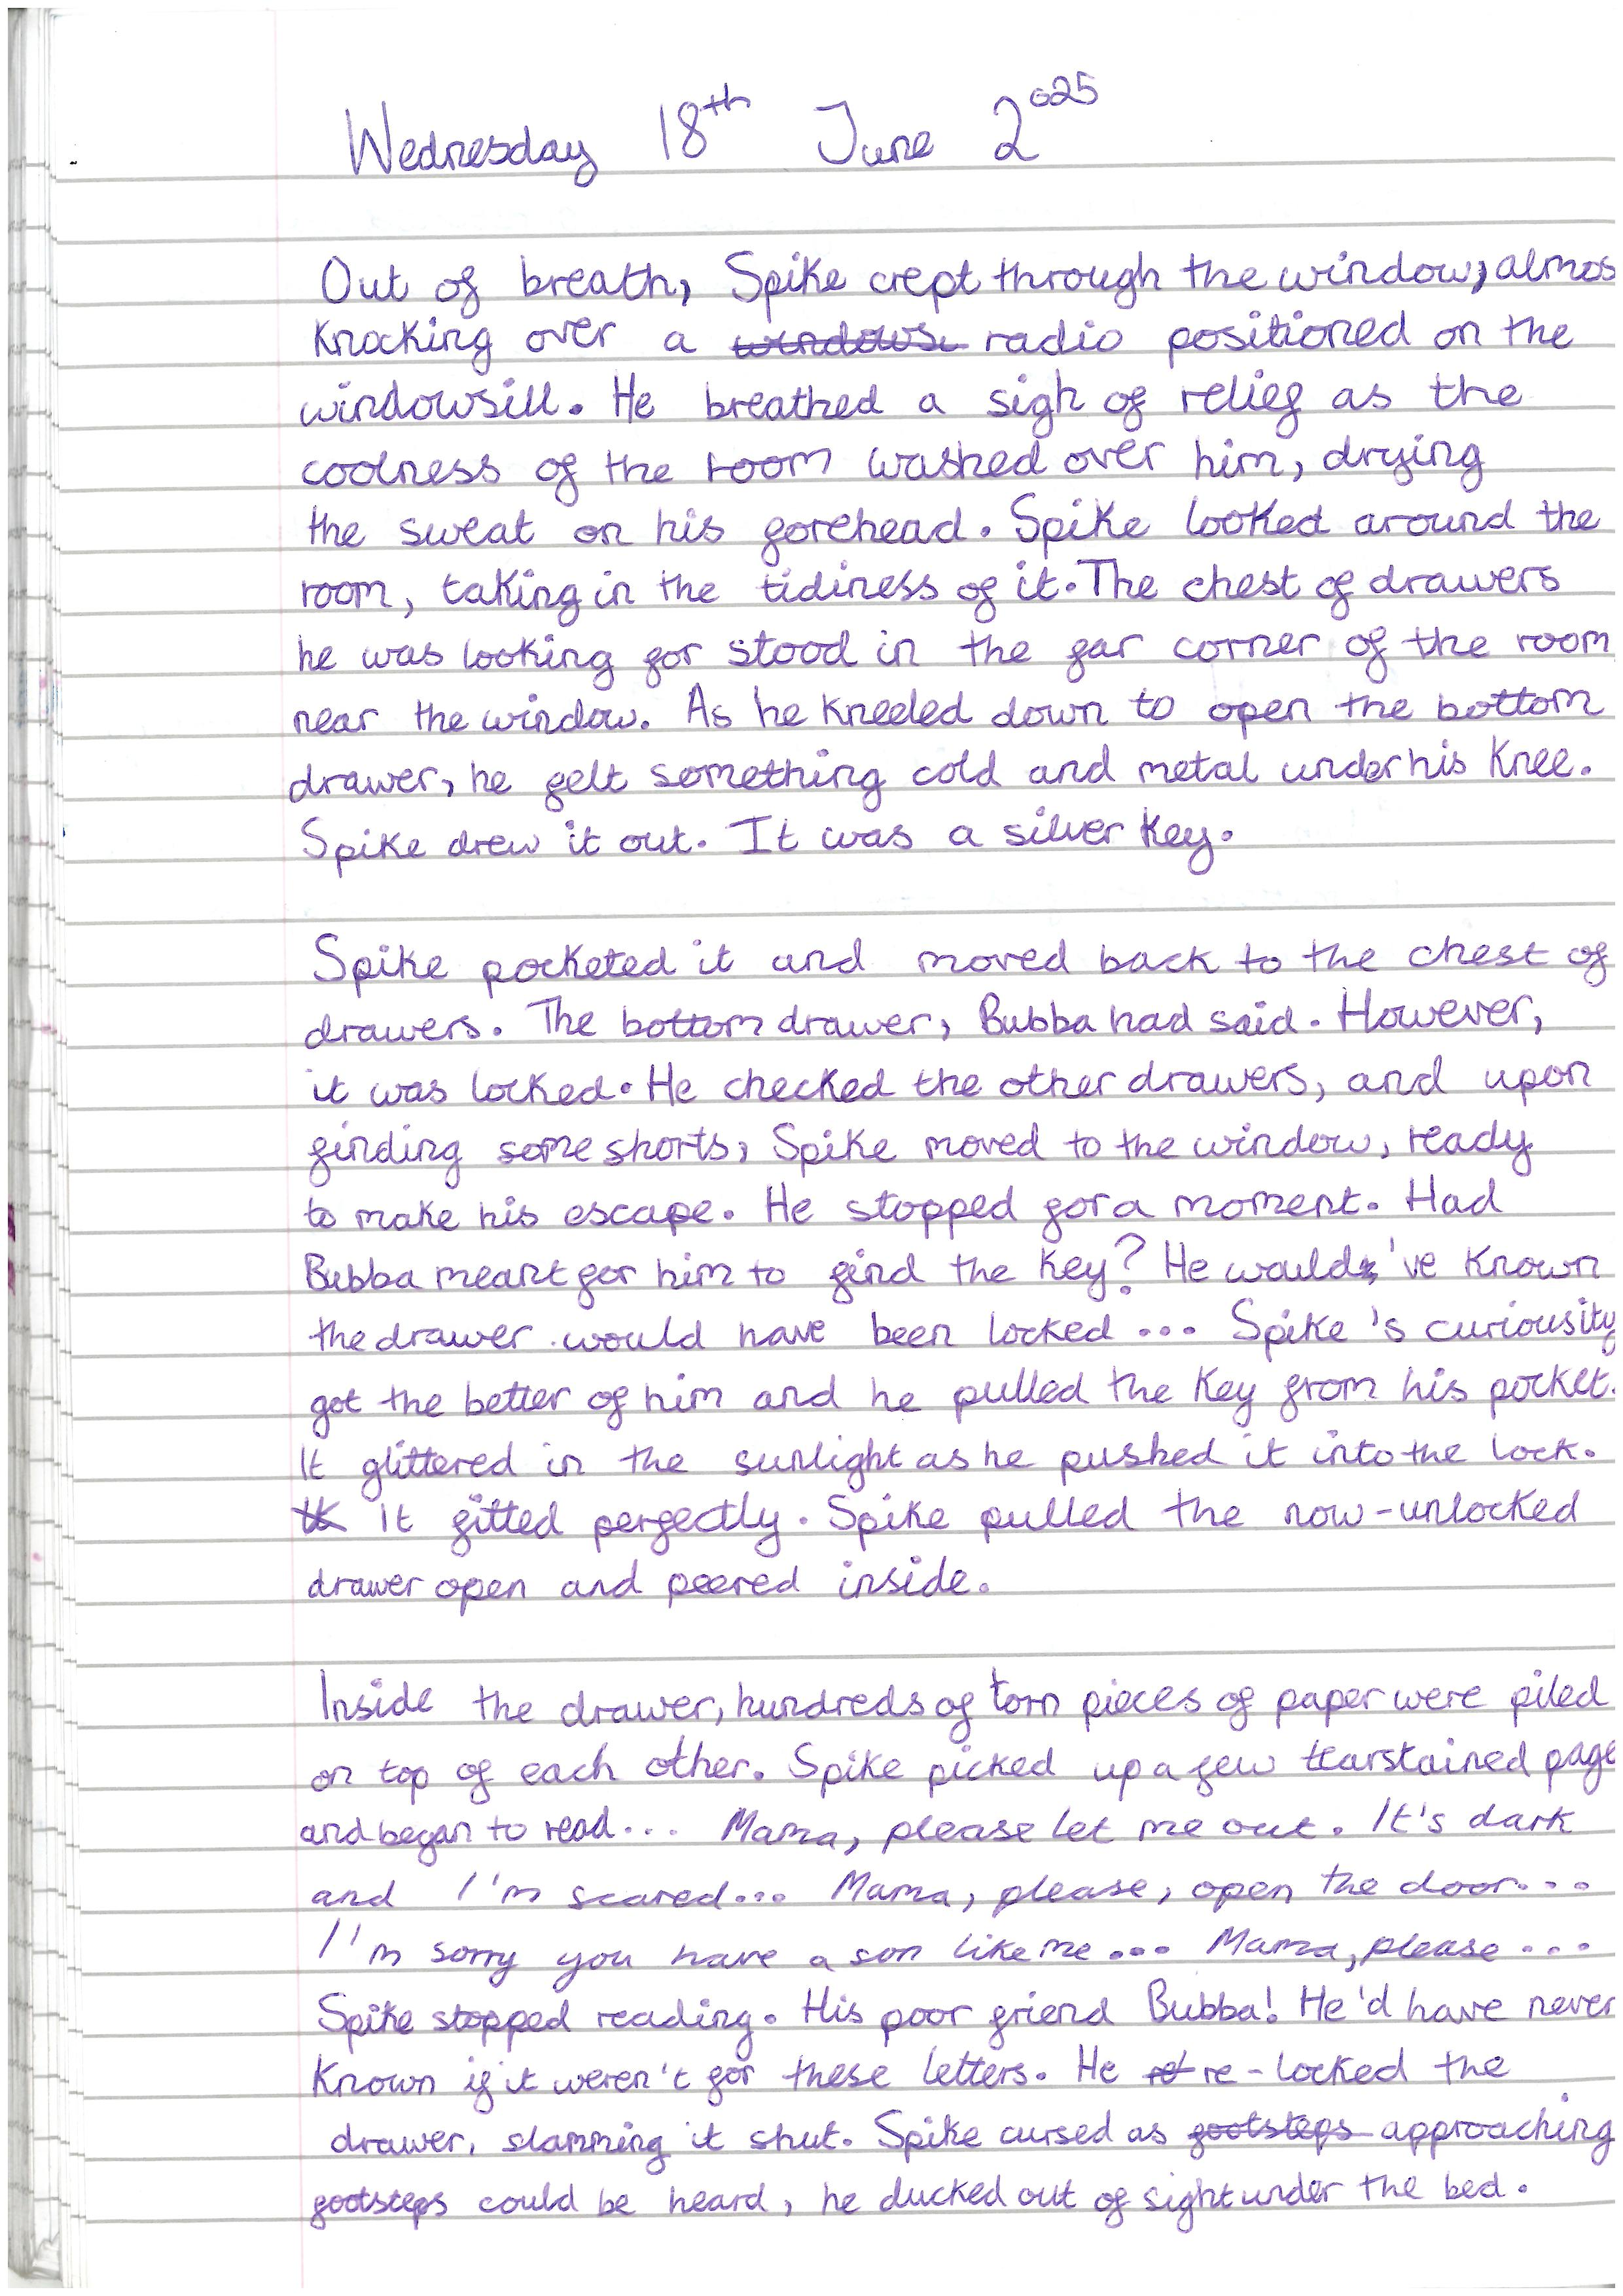 Wednesday 18th June 2025
Out of breath, Spike crept through the window, almos
knocking over a windows radio positioned on the
windowsill. He breathed a sigh of relief as the
coolness of the room washed over him, drying
the sweat on his forehead. Spike looked around the
room, taking in the tidiness of it. The chest of drawers
he was looking for stood in the far corner of the room
near the window. As he kneeled down to open the bottom
drawer, he felt something cold and metal under his knee.
Spike drew it out. It was a silver key.
Spike pocketed it and moved back to the chest of
drawers. The bottom drawer, Bubba had said. However,
it was locked. He checked the other drawers, and upon
finding some shorts, Spike moved to the window, ready
to make his escape. He stopped for a moment. Had
Bubba meant for him to find the key? He would've known
the drawer would have been locked... Spike's curiousity
got the better of him and he pulled the key from his pocket.
It glittered in the sunlight as he pushed it into the lock.
It It fitted perfectly. Spike pulled the now-unlocked
drawer open and peered inside.
Inside the drawer, hundreds of torn pieces of paper were piled
on top of each other. Spike picked up a few tearstained page
and began to read... Mama, please let me out. It's dark
and I'm scared... Mama, please, open the door...
I'm sorry you have a son like me... Mama, please...
Spike stopped reading. His poor friend Bubba! He'd have never
known if it weren't for these letters. He re-locked the
drawer, slamming it shut. Spike cursed as footsteps approaching
footsteps could be heard, he ducked out of sight under the bed.